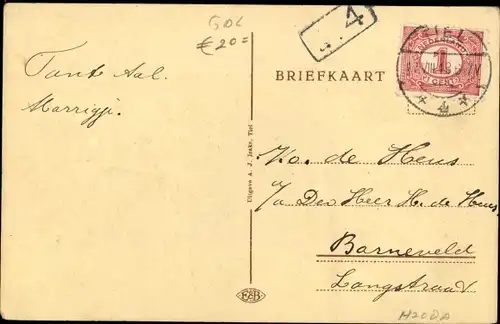 GDL
€ 20=
4
TIEL
NEDERLAND
1
CENT
4
BRIEFKAART
Tante Aal.
Marrigje.
Uitgave A. J. Jaske, Tiel
Ko. de Heus
a/a Den Heer H. de Heus,
Barneveld
Langstraat
FAB